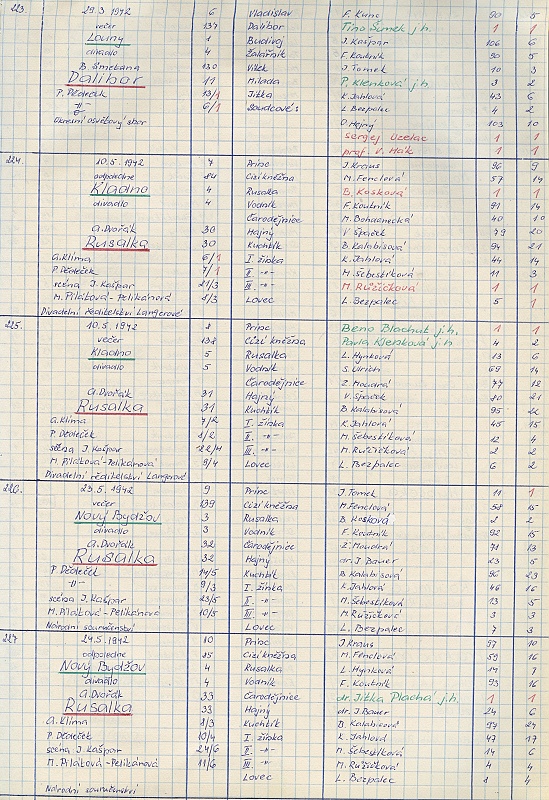 223. 29.3.1942 6 Vladislav F. Kunc 90 5
večer 137 Dalibor Tino Šimek j.h. 1 1
Louny 1 Budivoj J. Kašpar 106 6
divadlo 4 Žalářník F. Koutník 90 5
B. Smetana 130 Vítek J. Tomek 10 3
Dalibor 11 Milada P. Klenková j.h. 3 2
P. Dědeček 13/1 Jitka K. Jahlová 43 6
-"- 6/1 Soudcové: L. Bezpalec 4 2
Okresní osvětový sbor O. Hejný 103 10
Sergej Uzelac 1 1
prof. V. Hák 1 1
224. 10.5.1942 7 Princ J. Kraus 96 9
odpoledne 84 Cizí kněžna M. Fenclová 57 14
Kladno 4 Rusalka B. Kosková 1 1
divadlo 4 Vodník F. Koutník 91 14
Čarodějnice M. Bohdanecká 40 10
A. Dvořák 30 Hajný V. Špaček 79 20
Rusalka 30 Kuchtík B. Kalabisová 94 21
A. Klíma 6/1 I. žínka K. Jahlová 44 14
P. Dědeček 7/1 II. -"- M. Šebestíková 11 3
scéna J. Kašpar 21/3 III. -"- M. Růžičková 1 1
M. Piláková-Pelikánová 8/3 Lovec L. Bezpalec 5 1
Divadelní ředitelství Langerové
225. 10.5.1942 8 Princ Beno Blachut j.h. 1 1
večer 138 Cizí kněžna Pavla Klenková j.h 4 2
Kladno 5 Rusalka L. Hynková 13 6
divadlo 5 Vodník S. Ulrich 69 14
Čarodějnice Z. Moudrá 77 12
A. Dvořák 31 Hajný V. Špaček 80 21
Rusalka 31 Kuchtík B. Kalabisová 95 22
A. Klíma 7/2 I. žínka K. Jahlová 45 15
P. Dědeček 8/2 II. -"- M. Šebestíková 12 4
scéna J. Kašpar 22/4 III. -"- M. Růžičková 2 2
M. Piláková-Pelikánová 9/4 Lovec L. Bezpalec 6 2
Divadelní ředitelství Langerové
226. 23.5.1942 9 Princ J. Tomek 11 1
večer 139 Cizí kněžna M. Fenclová 58 15
Nový Bydžov 3 Rusalka B. Kosková 2 2
divadlo 3 Vodník F. Koutník 92 15
A. Dvořák 32 Čarodějnice Z. Moudrá 78 13
Rusalka 32 Hajný dr. J. Bauer 23 5
P. Dědeček 14/5 Kuchtík B. Kalabisová 96 23
-"- 9/3 I. žínka K. Jahlová 46 16
scéna J. Kašpar 23/5 II. -"- M. Šebestíková 13 5
M. Piláková-Pelikánová 10/5 III. -"- M. Růžičková 3 3
Národní souručenství Lovec L. Bezpalec 7 3
227. 24.5.1942 10 Princ J. Kraus 97 10
odpoledne 85 Cizí kněžna M. Fenclová 59 16
Nový Bydžov 4 Rusalka L. Hynková 14 7
divadlo 4 Vodník F. Koutník 93 16
A. Dvořák 33 Čarodějnice dr. Jitka Plachá j.h. 1 1
Rusalka 33 Hajný dr. J. Bauer 24 6
A. Klíma 8/3 Kuchtík B. Kalabisová 97 24
P. Dědeček 10/4 I. žínka K. Jahlová 47 17
scéna J. Kašpar 24/6 II. -"- M. Šebestíková 14 6
M. Piláková-Pelikánová 11/6 III. -"- M. Růžičková 4 4
Lovec L. Bezpalec 8 4
Národní souručenství